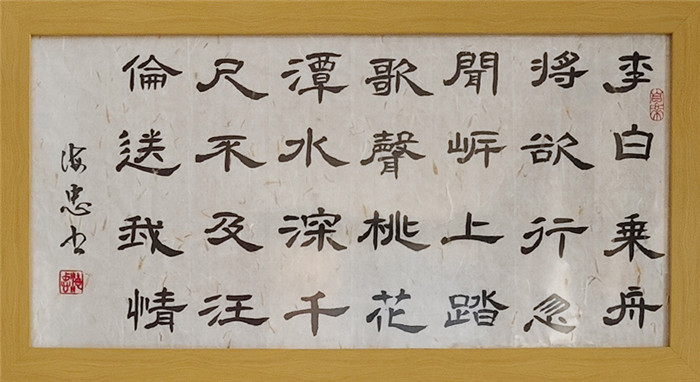 李白乗舟
將欲行忽
聞岍上踏
歌聲桃花
潭水深千
尺不及汪
倫送我情
海忠书